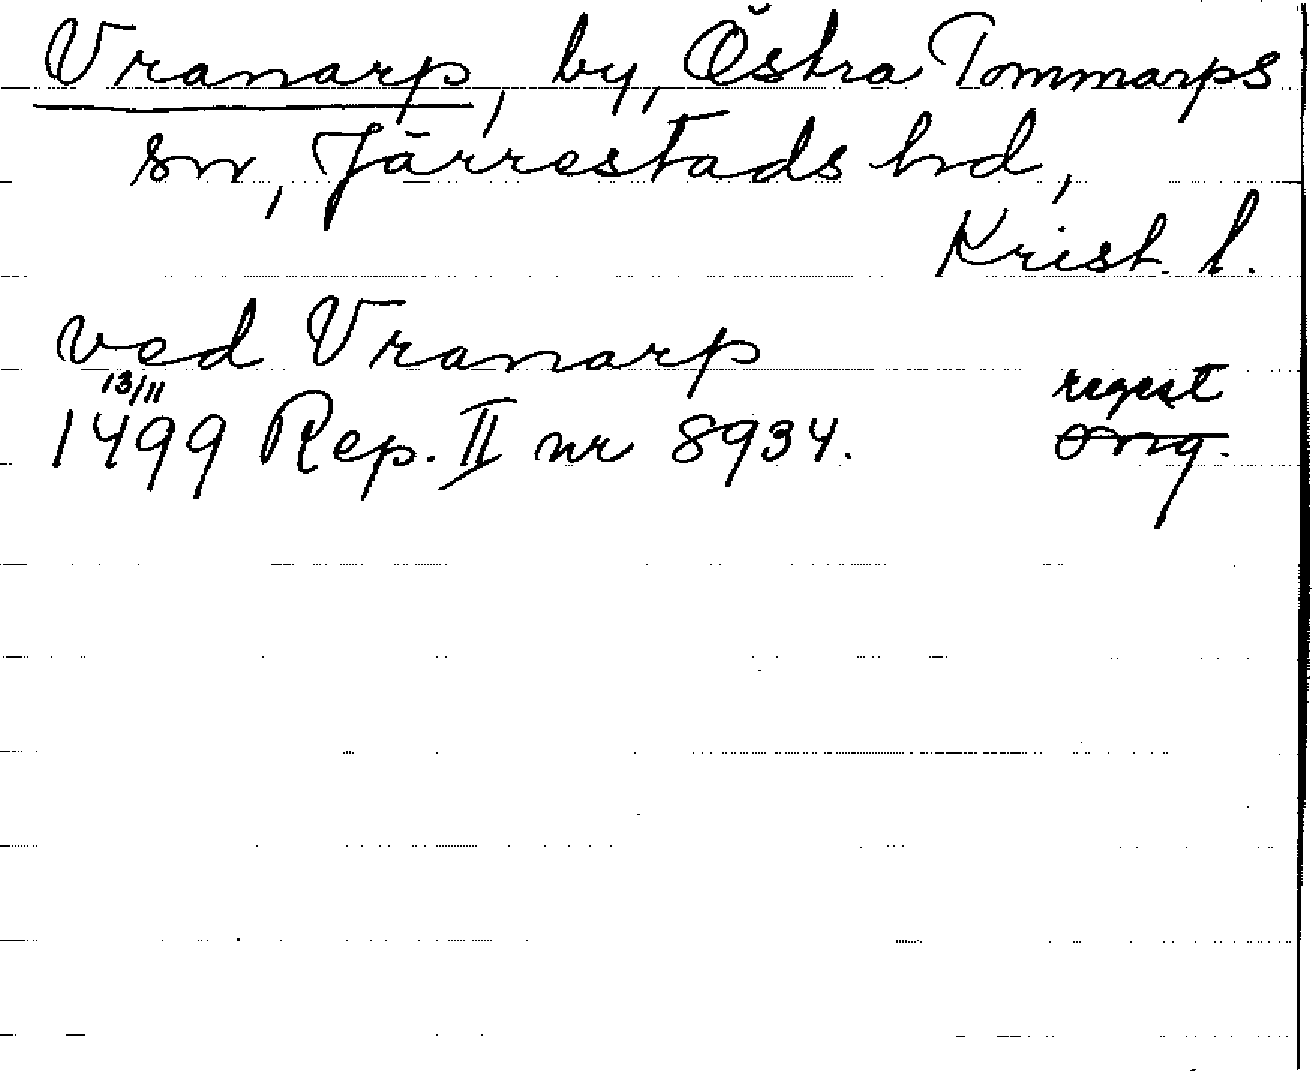 Vranarp, by, Östra Tommarps
sn, Järrestads hd,
Krist. l.
ved Vranarp
13/11
regest
1499 Rep. II nr 8934. orig.